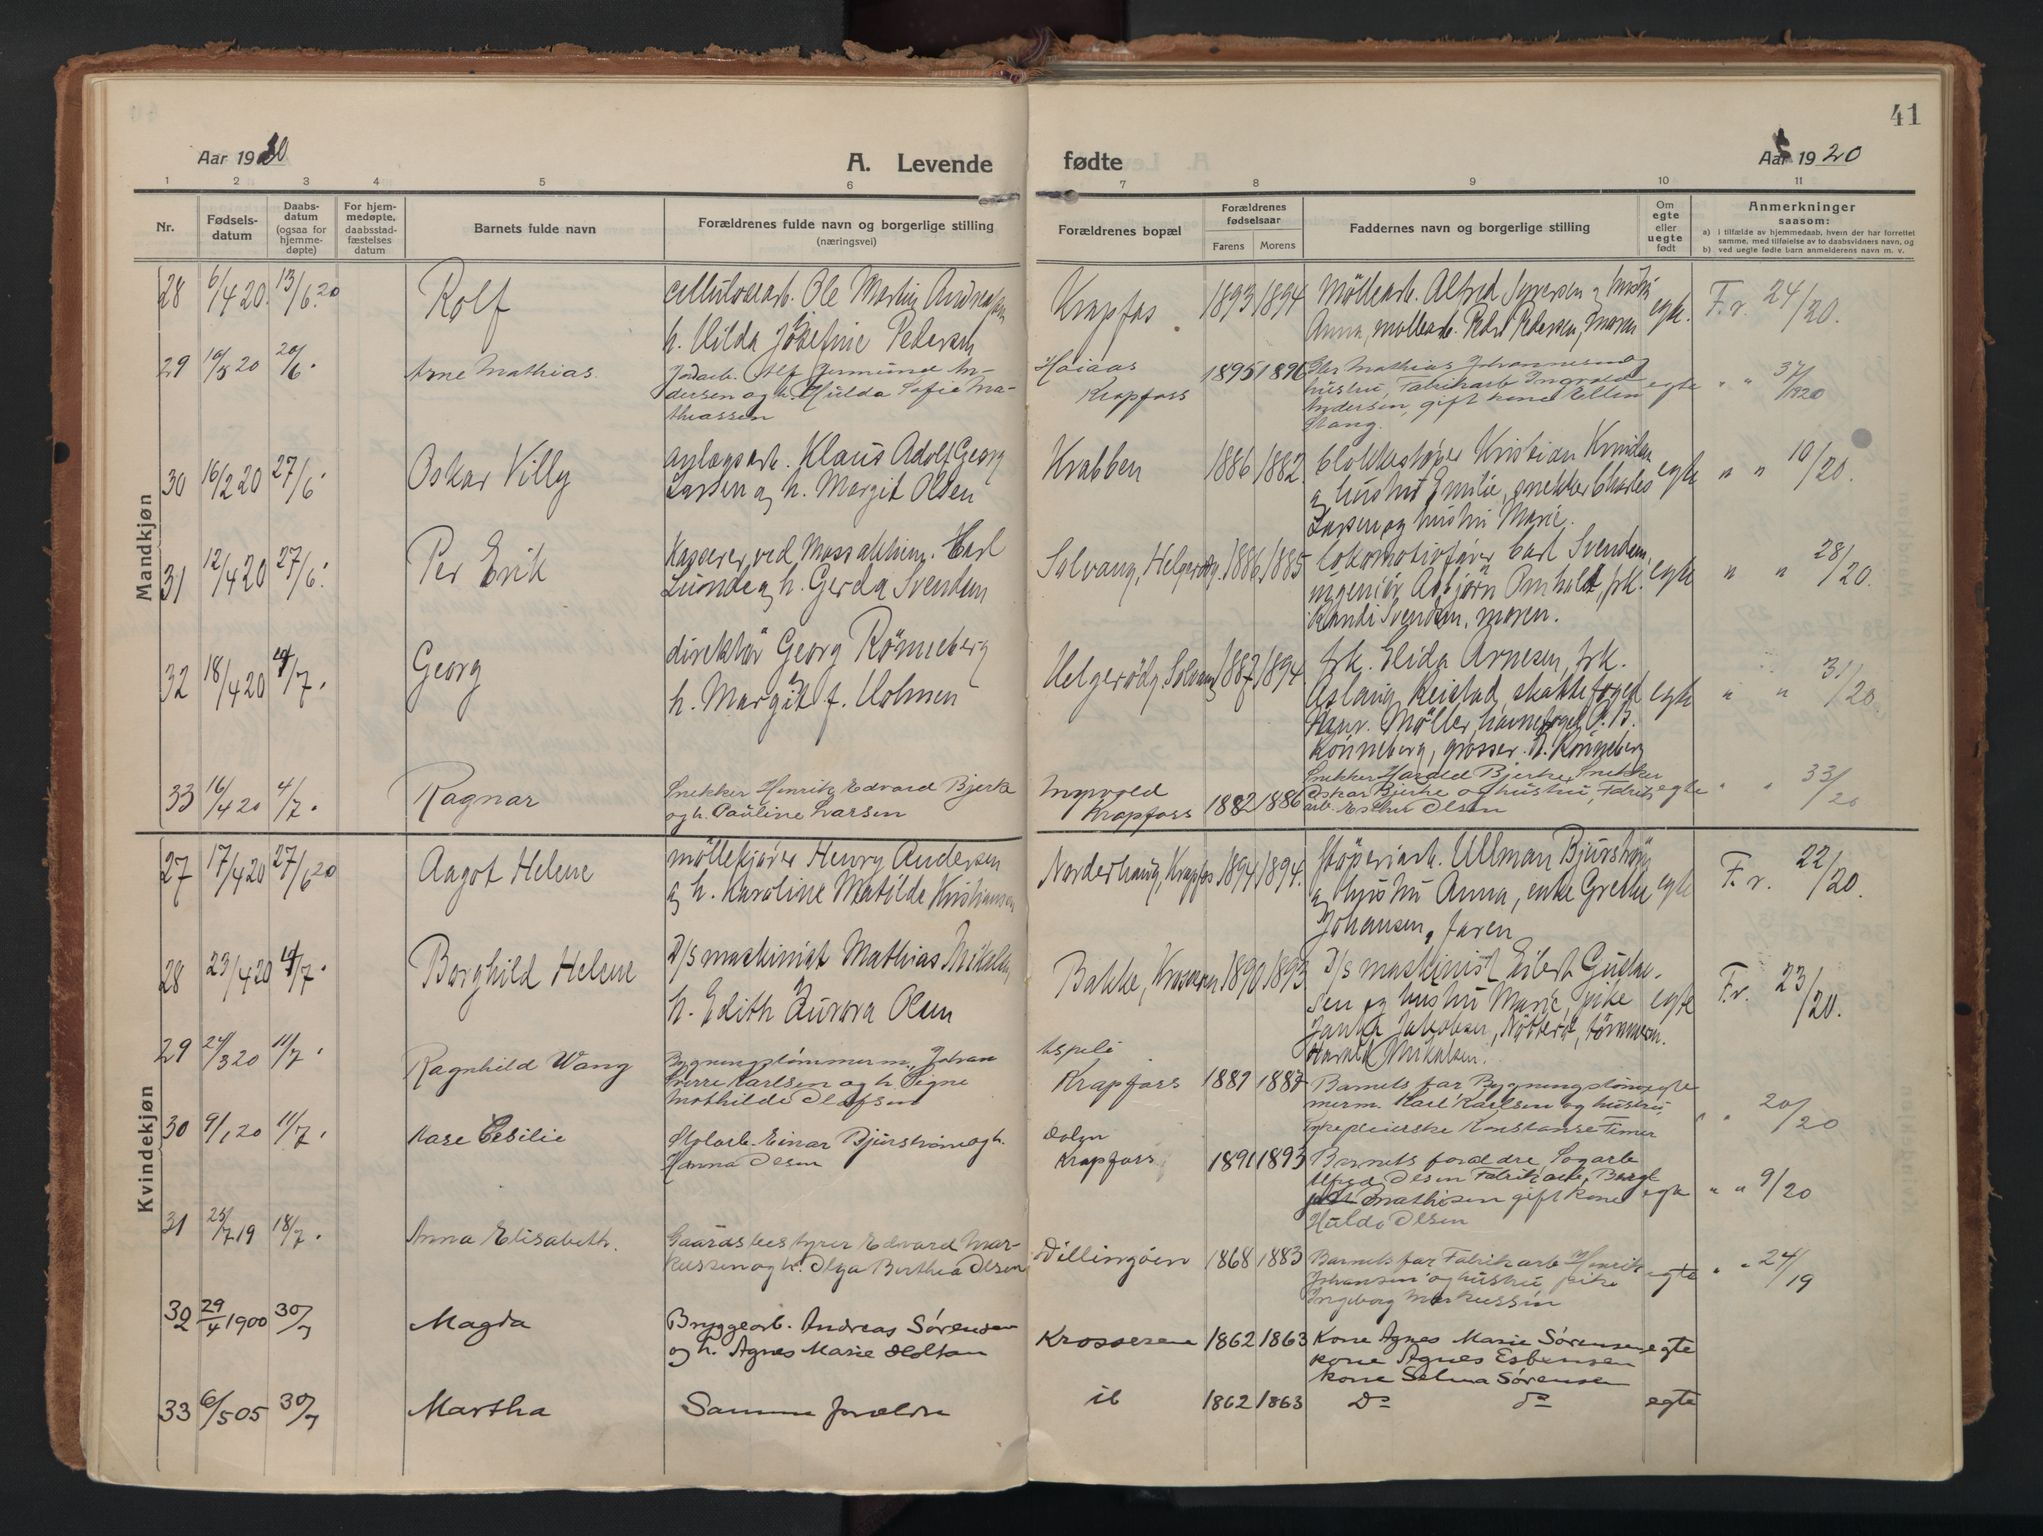 41
Aar 1920
A. Levende
fødte
Aar 1920
1 2 3 4 5 6 7 8 9 10 11
Nr.
Fødsels-
datum
Daabs-
datum
(ogsaa for
hjemme-
døpte)
For hjem-
medøpte,
daabsstad-
fæstelses
datum
Barnets fulde navn
Forældrenes fulde navn og borgerlige stilling
(næringsvei)
Forældrenes bopæl
Forældrenes
fødselsaar
Farens
Morens
Faddernes navn og borgerlige stilling
Om
egte
eller
uegte
født
Anmerkninger
saasom:
a) i tilfælde av hjemmedaab, hvem der har forrettet
samme, med tilføielse av to daabsvidners navn, og
b) ved uegte fødte barn anmelderens navn m. v.
Mandkjøn
28 6/4 20. 13/6.20 Rolf
cellulosearb. Ole Martin
h. Hilda Josefine Pedersen
Krapfos 1893 1894
Möllearb. Alfred Syversen
Anna, møllearb. Pedersen, moren
egte. F. r. 24/20.
29 20 20/6. Arne Mathias.
Jordarb. Alf Jermund An-
dersen og h. Hulda Sofie Ma-
thiassen
Høiaas
Krapfoss 1895 1896
Mathias Johannesen og
hustru, Fabrikarb. Ingvald
Andersen, gift kone Ellen
Stang.
egte " " 37/1920
30 16/2 20 27/6. Oskar Villy
anlægsarb. Klaus Adolf Georg
Larsen og h. Margit Olsen
Krabben 1886 1882.
Kristian
og hustru Emilie, snekker Charles
Larsen og hustru Marie.
egte " " 10/20.
31 12/4 20 27/6. Per Erik
Kasserer ved Carl
Lunde og h. Gerda Svendsen
Solvang, 1886. 1885
lokomotivfører Carl Svendsen,
ingeniør Asbjørn Omholt, frk.
Randi Svendsen, moren.
egte " " 28/20.
32 18/4 20 4/7. Georg
direktör Georg Rönneberg
h. Margit f. Holmen
Helgerödg. Solvang 1887. 1894
frk. Elida Arnesen, frk.
Aslaug Reistad, skattefoged
Møller, havnefoged
Rönneberg, grosser. Rönneberg
egte " " 31/20.
33 16/4 20 4/7. Ragnar
Snekker Henrik Edvard Bjerke
og h. Pauline Larsen
Ingvold
Krapfoss 1882 1886
Snekker Harald Bjerke, Snekker
Oskar Bjerke og hustru, Fabrik-
arb. Olsen
egte " " 33/20
Kvindekjøn
27 17/4 20 27/6 20 Aagot Helene
møllekjører Henry Andersen
og h. Karoline Matilde Kristiansen
Norderhaug, Krapfos 1894 1894.
støperiarb. Ullman Bjurstrøm
og hustru Anna, enke Grethe
Johansen, faren
egte F. r. 22/20.
28 23/4 20 4/7. Borghild Helene
D/s maskinist Mathias Mikalsen
h. Edith Aurora Olsen
Bakke, 1890 1893
D/s maskinist Eilert Gustav-
sen og hustru Marie, pike
Jakobsen, Nötterö, tömmerm.
Harald Mikalsen.
egte F.r. 23/20.
29 24/3 20 11/7. Ragnhild Wang
Bygningstømmerm. Johan
Sverre Karlsen og h. Signe
Mathilde Olafsen
Aspeli
Krapfoss 1889 1887
Barnets far Bygningstøm-
merm. Karl Karlsen og hustru,
Sykepleierske Konstanse Timer
egte " " 20/20
30 9/1 20 11/7. Kase Cesilie
Stolarb. Einar Bjurstrøm og h.
Hanna Olsen
Dalen
Krapfoss 1891 1893
Barnets forældre Sagarb.
Alfred Olsen Fabrikarb. Bergl
Mathisen gift kone
Hulda Olsen
egte " " 9/20
31 25/7 19 18/7. Anna Elisabeth.
Gaardsbestyrer Edvard Mar-
kussen og h. Olga Berthea Olsen
Dillingöen 1868 1883
Barnets far Fabrikarb. Henrik
Johansen og hustru, pike
Ingeborg Markussen
egte " " 24/19
32 29/4 1900 30/7 Magda
Bryggearb. Andreas Sörensen
og h. Agnes Marie Holtan
Krosseren 1862 1863
Kone Agnes Marie Sörensen
kone Agnes Esbensen
kone Selma Sörensen
egte
33 6/5 05 30/7 Martha
Samme forældre
ib 1862 1863 Do do egte